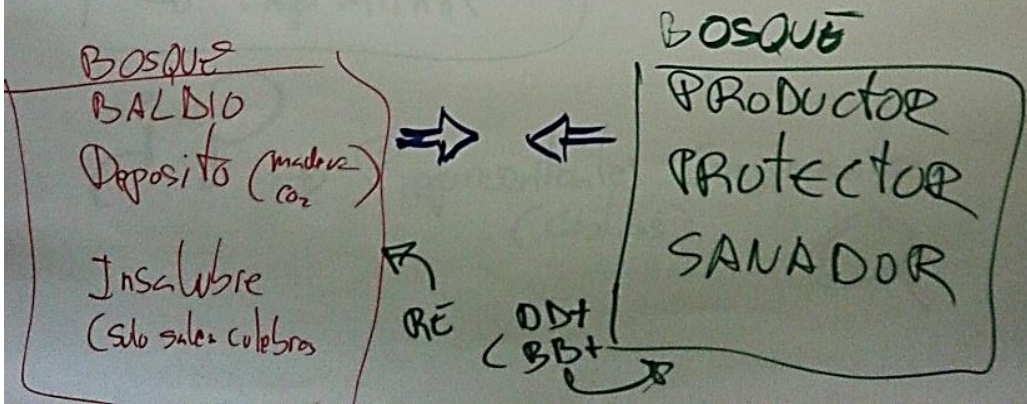 BOSQUE
BALDIO
Deposito (madera
CO2)
Insalubre
(solo salen culebras
RE
DD+
(BB+
BOSQUE
PRODUCTOR
PROTECTOR
SANADOR